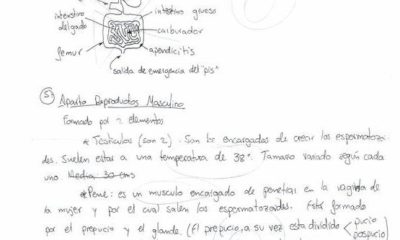 intenstino
delgado
intestino grueso
carburador
femur
apendicitis
salida de emergencia del "pis"
5. Aparato Reproductor Masculino
Formado por 2 elementos
* Testículos (son 2). Son los encargados de crear los espermatozoi
des. Suelen estar a una temperatura de 38°. Tamaño variado según cada
uno Media 30 cms
* Pene: es un musculo encargado de penetrar en la vagina de
la mujer y por el cual salen los espermatozoides. Está formado
por el prepucio y el glande. (El prepucio, a su vez esta dividido < pucio
pospucio